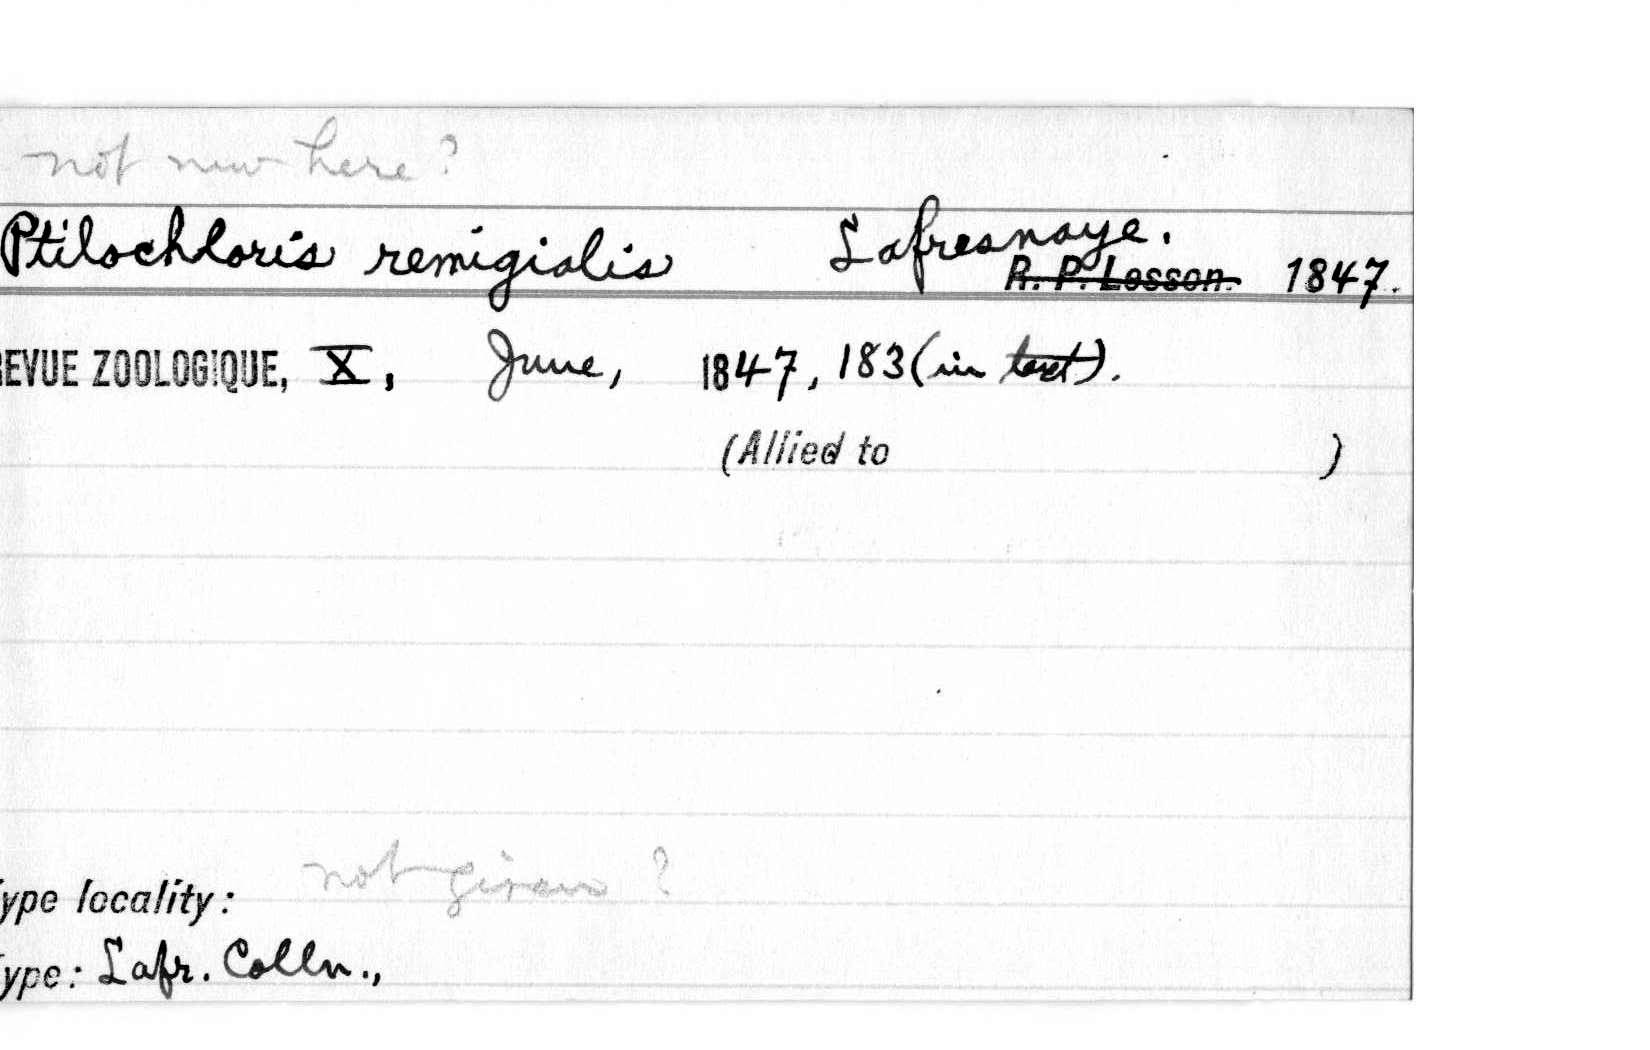 not new here?
Ptilochloris remigialis Lafresnaye.
R. P. Lesson. 1847.
REVUE ZOOLOGIQUE, X, June, 1847, 183 (in text).
(Allied to )
ype locality: not given?
ype: Lafr. Colln.,